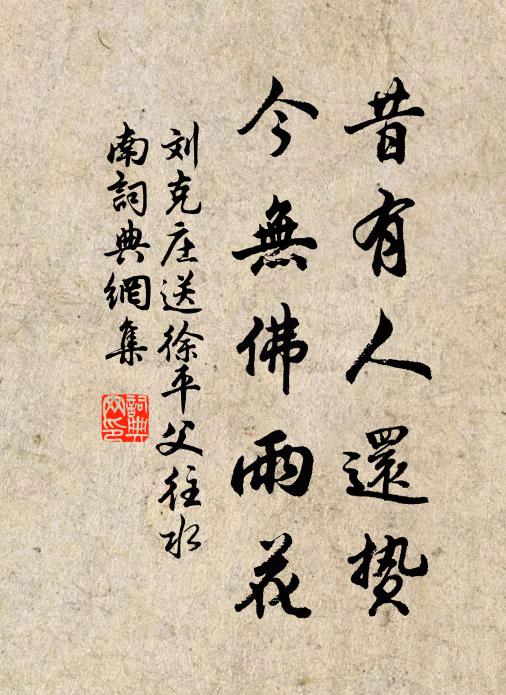 昔有人還贽
今無佛雨花
刘克庄送徐平父往水
南詞典網集
詞典網印